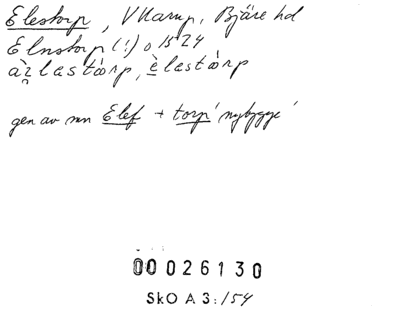 Elestorp, V Karup, Bjäre hd
Elnstorp (!) o 1524
àʒlastɷrp, èlastɷ̀rp
gen av mn Elef + torp ́nybygge ́
00026130
SkO A 3:154